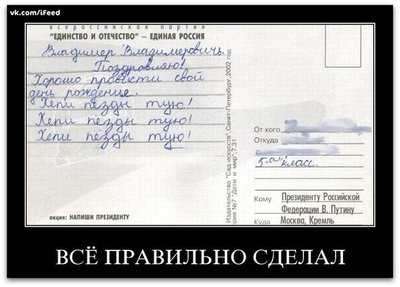 vk.com/iFeed
всероссийская партия
"ЕДИНСТВО И ОТЕЧЕСТВО" – ЕДИНАЯ РОССИЯ
Владимер Владимеровичь.
Поздровляю!
Хорошо провисти свой
день рождение.
Хепи пезды тую!
Хепи пезды тую!
Хепи пезды тую!
акция: НАПИШИ ПРЕЗИДЕНТУ
Издательство "Сад искусств", Санкт-Петербург, 2002 год
серия №7 "Дети и мир" 7.31
От кого
Откуда
5 класс.
Кому Президенту Российской
Федерации В. Путину
Куда Москва, Кремль
ВСЁ ПРАВИЛЬНО СДЕЛАЛ